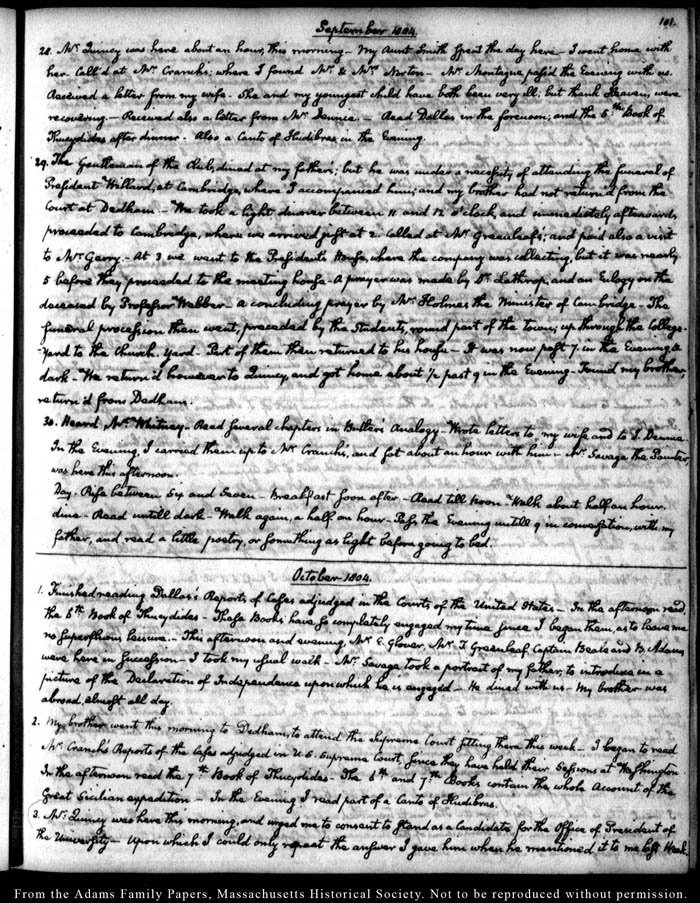 181.
September 1804.
28. Mr. Quincy was here about an hour, this morning — My Aunt Smith spent the day here — I went home with
her. Call'd at Mr. Cranch's; where I found Mr. & Mrs. Norton — Mr. Montague, pass'd the Evening with us.
Received a letter from my wife. She and my youngest child have both been very ill; but thank Heaven, were
recovering. — Received also a letter from Mr. Dennie. — Read Dallas in the forenoon; and the 5th Book of
Thucydides after dinner — Also a Canto of Hudibras in the Evening.
29. The Gentlemen of the Club, dined at my father's; but he was under a necessity of attending the funeral of
President Willard, at Cambridge, where I accompanied him; and my brother had not return'd from the
Court at Dedham — We took a light dinner between 11 and 12 o'clock, and immediately afterwards
proceeded to Cambridge, where we arrived just at 2. Called at Mr. Greenleaf's; and paid also a visit
to Mr. Gerry — At 3 we went to the President's House, where the company was collecting, but it was nearly
5 before they proceeded to the meeting house — A prayer was made by Dr. Lathrop, and an Eulogy on the
deceased by Professor Webber — a concluding prayer by Mr. Holmes the Minister of Cambridge — The
funeral procession then went, preceded by the Students, round part of the town; up through the College-
-Yard to the Church-yard — Part of them then returned to his house — It was now past 7. in the Evening &
dark — We return'd however to Quincy, and got home about ½ past 9 in the Evening — Found my brother,
return'd from Dedham.
30. Heard Mr. Whitney — Read several chapters in Butler's Analogy — Wrote letters to my wife and to J. Dennie.
In the Evening, I carried them up to Mr. Cranch's, and sat about an hour with him — Mr. Savage the Painter,
was here this afternoon.
Day. Rise between six and seven — Breakfast soon after — Read till Noon — Walk about half an hour.
dine — Read untill dark — Walk again, a half an hour — Pass the Evening untill 9 in conversation, with my
father, and read a little poetry, or something as light before going to bed.
October 1804.
1. Finished reading Dallas's Reports of Cases adjudged in the Courts of the United States — In the afternoon read
the 6th Book of Thucydides — These Books have so completely engaged my time since I began them, as to leave me
no superfluous leisure. — This afternoon and evening, Mr. E. Glover, Mr. T. Greenleaf, Captain Beale and B. Adams
were here in succession — I took my usual walk — Mr. Savage took a portrait of my father, to introduce in a
picture of the Declaration of Independence upon which he is engaged — He dined with us — My brother was
abroad, almost all day.
2. My brother went this morning to Dedham, to attend the Supreme Court sitting there this week — I began to read
Mr. Cranch's Reports of the Cases adjudged in U.S. Supreme Court, since they have held their Sessions at Washington
In the afternoon read the 7th Book of Thucydides — The 6th and 7th Books contain the whole Account of the
Great Sicilian expedition — In the Evening I read part of a Canto of Hudibras.
3. Mr. Quincy was here this morning, and urged me to consent to stand as a Candidate for the Office of President of
the University — Upon which I could only repeat the answer I gave him when he mentioned it to me last Week
From the Adams Family Papers, Massachusetts Historical Society. Not to be reproduced without permission.